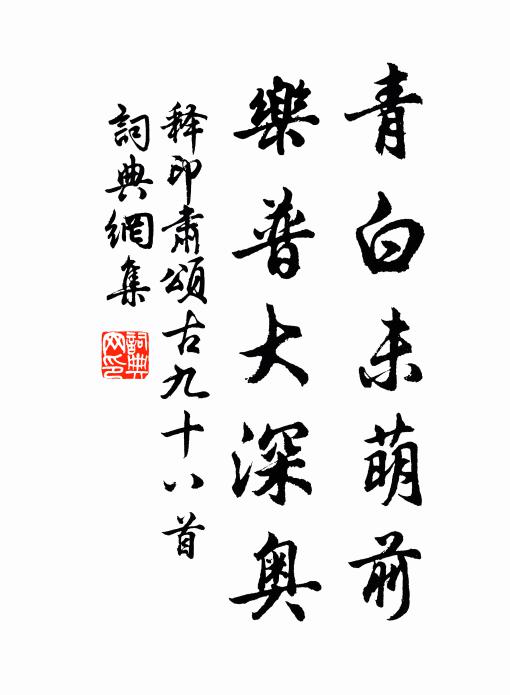 青白未萌前
樂普大深奥
释印肅頌古九十八首
詞典網集
詞典
网印